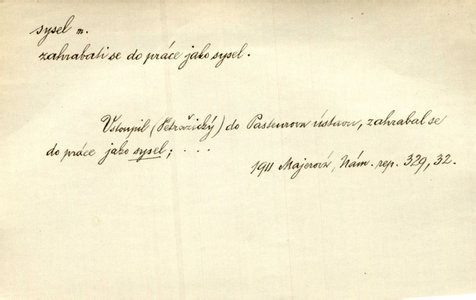 sysel m.
zahrabati se do práce jako sysel.
Vstoupil (Petražický) do Pasteurova ústavu, zahrabal se
do práce jako sysel; . . .
1911 Majerová, Nám. rep. 329, 32.